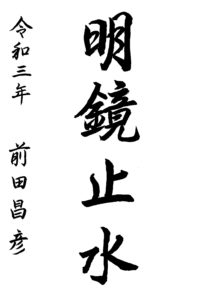 明鏡止水
令和三年 前田昌彦